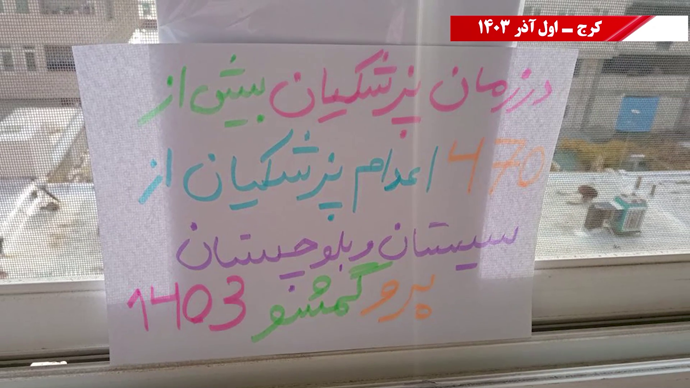 کرج – اول آذر ۱۴۰۳
در زمان پزشکیان بیش از
470 اعدام پزشکیان از
سیستان و بلوچستان
برو گمشو 1403